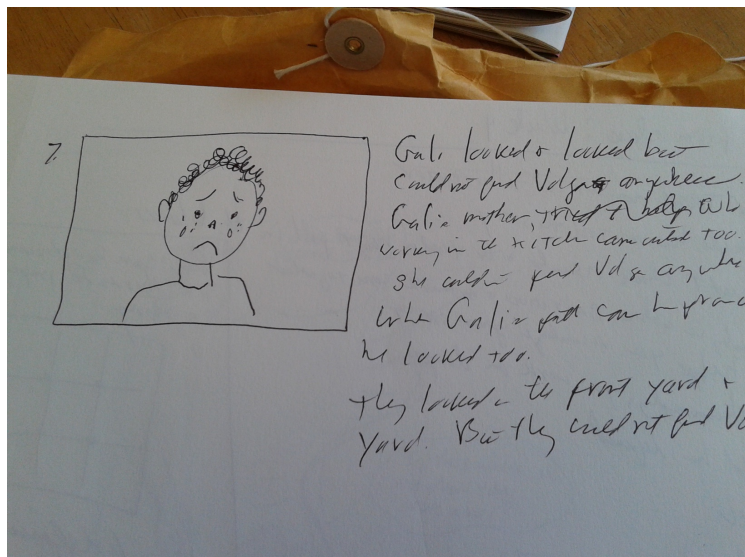 7.
Gali looked + looked but
could not find Volga anywhere.
Gali's mother,
working in the kitchen came outside too.
She couldn't find Volga
When Gali's came home from
he looked too.
They looked in the front yard +
yard. But they could not find